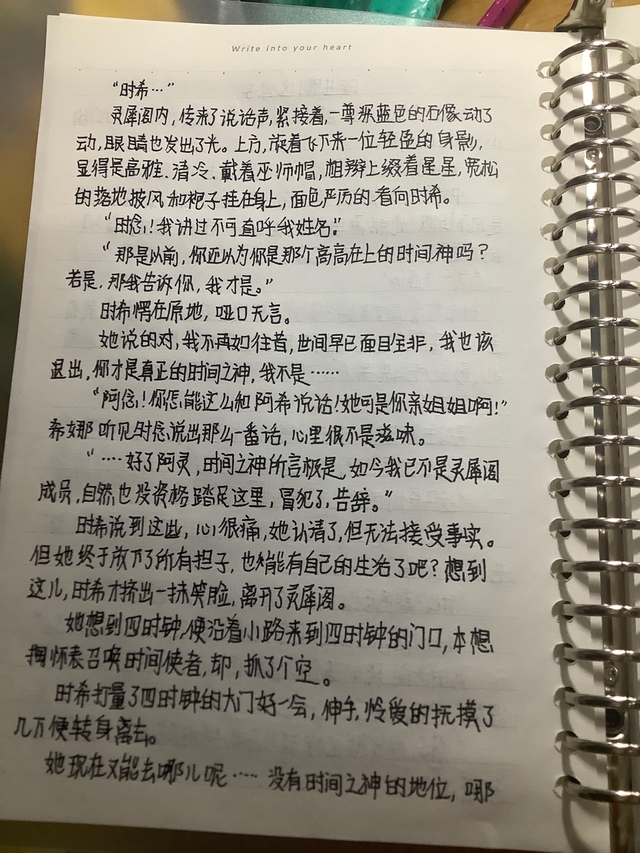 Write into your heart
“时希…”
灵犀阁内，传来了说话声，紧接着，一尊深蓝色的石像动了
动，眼睛也发出了光。上方，旋着飞下来一位轻色的身影，
显得是高雅、清冷、戴着巫师帽，粗辫上缀着星星，宽松
的落地披风和裙子挂在身上，面色严厉的看向时希。
“时念！我讲过不可直呼我姓名”
“那是以前，你还以为你是那个高高在上的时间神吗？
若是，那我告诉你，我才是。”
时希愣在原地，哑口无言。
她说的对，我不再如往昔，世间早已面目全非，我也该
退出，你才是真正的时间之神，我不是……
“阿念！你怎能这么和阿希说话！她可是你亲姐姐啊！”
希娜听见时念说出那么一番话，心里很不是滋味。
“…好了阿灵，时间之神所言极是，如今我已不是灵犀阁
成员，自然也没资格踏足这里，冒犯了，告辞。”
时希说到这些，心很痛，她认清了，但无法接受事实。
但她终于放下了所有担子，也能有自己的生活了吧？想到
这儿，时希才挤出一抹笑脸，离开了灵犀阁。
她想到四时钟，便沿着小路来到四时钟的门口，本想
掏怀表召唤时间使者，却，抓了个空。
时希打量了四时钟的大门好一会，伸手，怜爱的抚摸了
几下便转身离去。
她现在又能去哪儿呢…… 没有时间之神的地位，哪